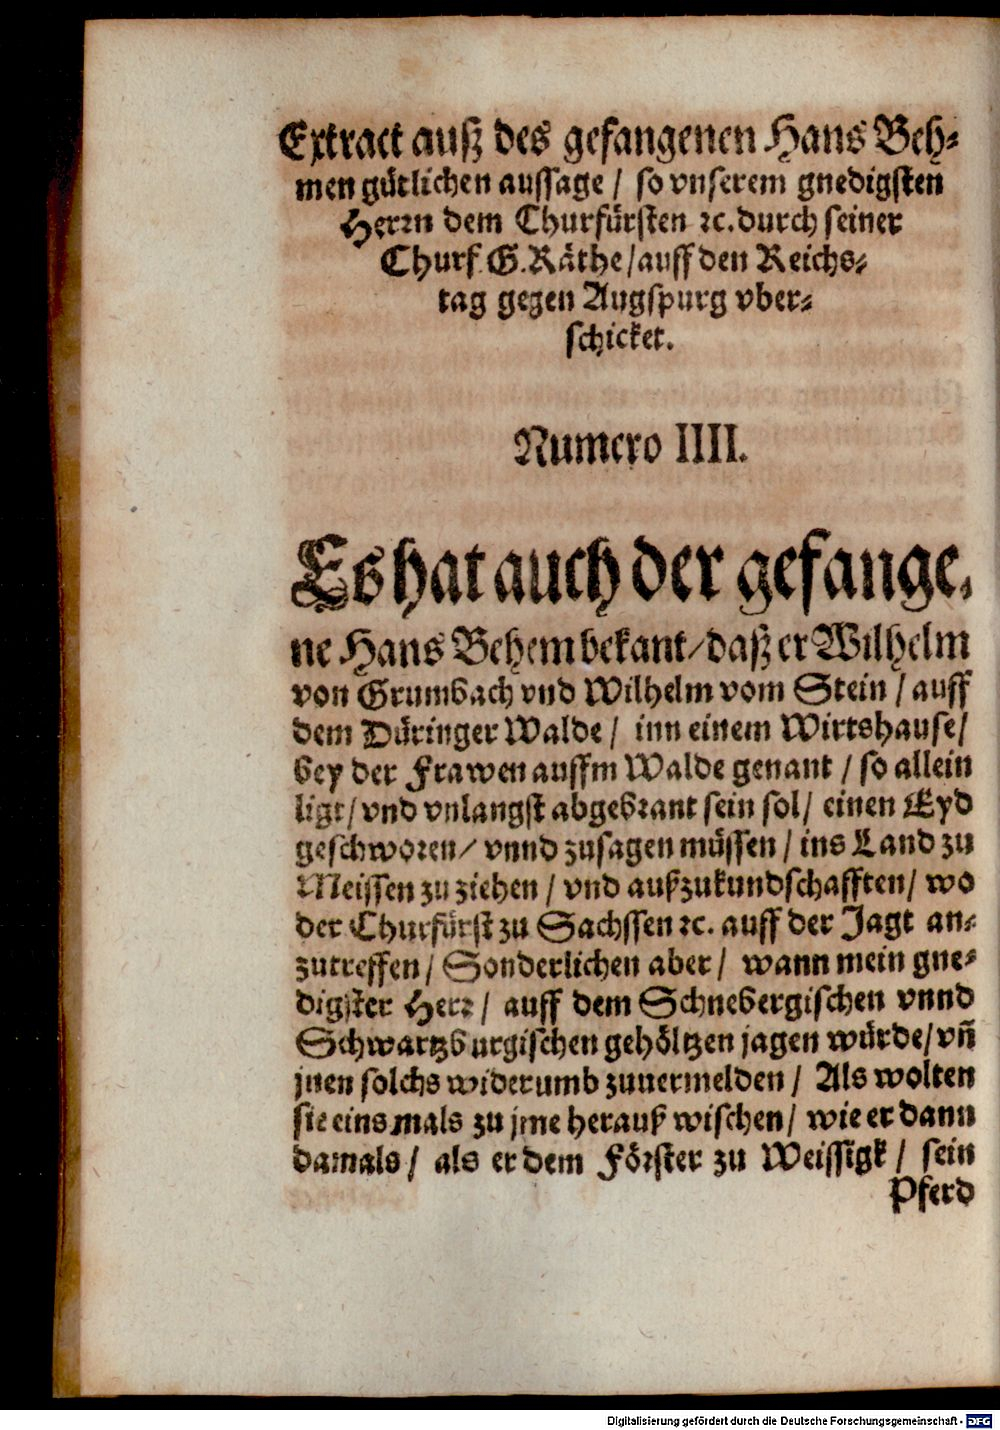 Extract auß des gefangenen Hans Beh⸗
men gütlichen aussage / so vnserem gnedigsten
Herrn dem Churfürsten ꝛc. durch seiner
Churf. G. Räthe / auff den Reichs⸗
tag gegen Augspurg vber⸗
schicket.
Numero IIII.
Es hat auch der gefange⸗
ne Hans Behem bekant / daß er Wilhelm
von Grumbach vnd Wilhelm vom Stein / auff
dem Düringer Walde / inn einem Wirtshause /
bey der Frawen auffm Walde genant / so allein
ligt / vnd vnlangst abgebrant sein sol / einen Eyd
geschworen / vnnd zusagen müssen / ins Land zu
Meissen zu ziehen / vnd außzukundschafften / wo
der Churfürst zu Sachssen ꝛc. auff der Jagt an⸗
zutreffen / Sonderlichen aber / wann mein gne⸗
digster Herr / auff dem Schnebergischen vnnd
Schwartzburgischen gehöltzen jagen würde / vñ
jnen solchs widerumb zuuermelden / Als wolten
sie eins mals zu jme herauß wischen / wie er dann
damals / als er dem Förster zu Weissigk / sein
Pferd
Digitalisierung gefördert durch die Deutsche Forschungsgemeinschaft - DFG